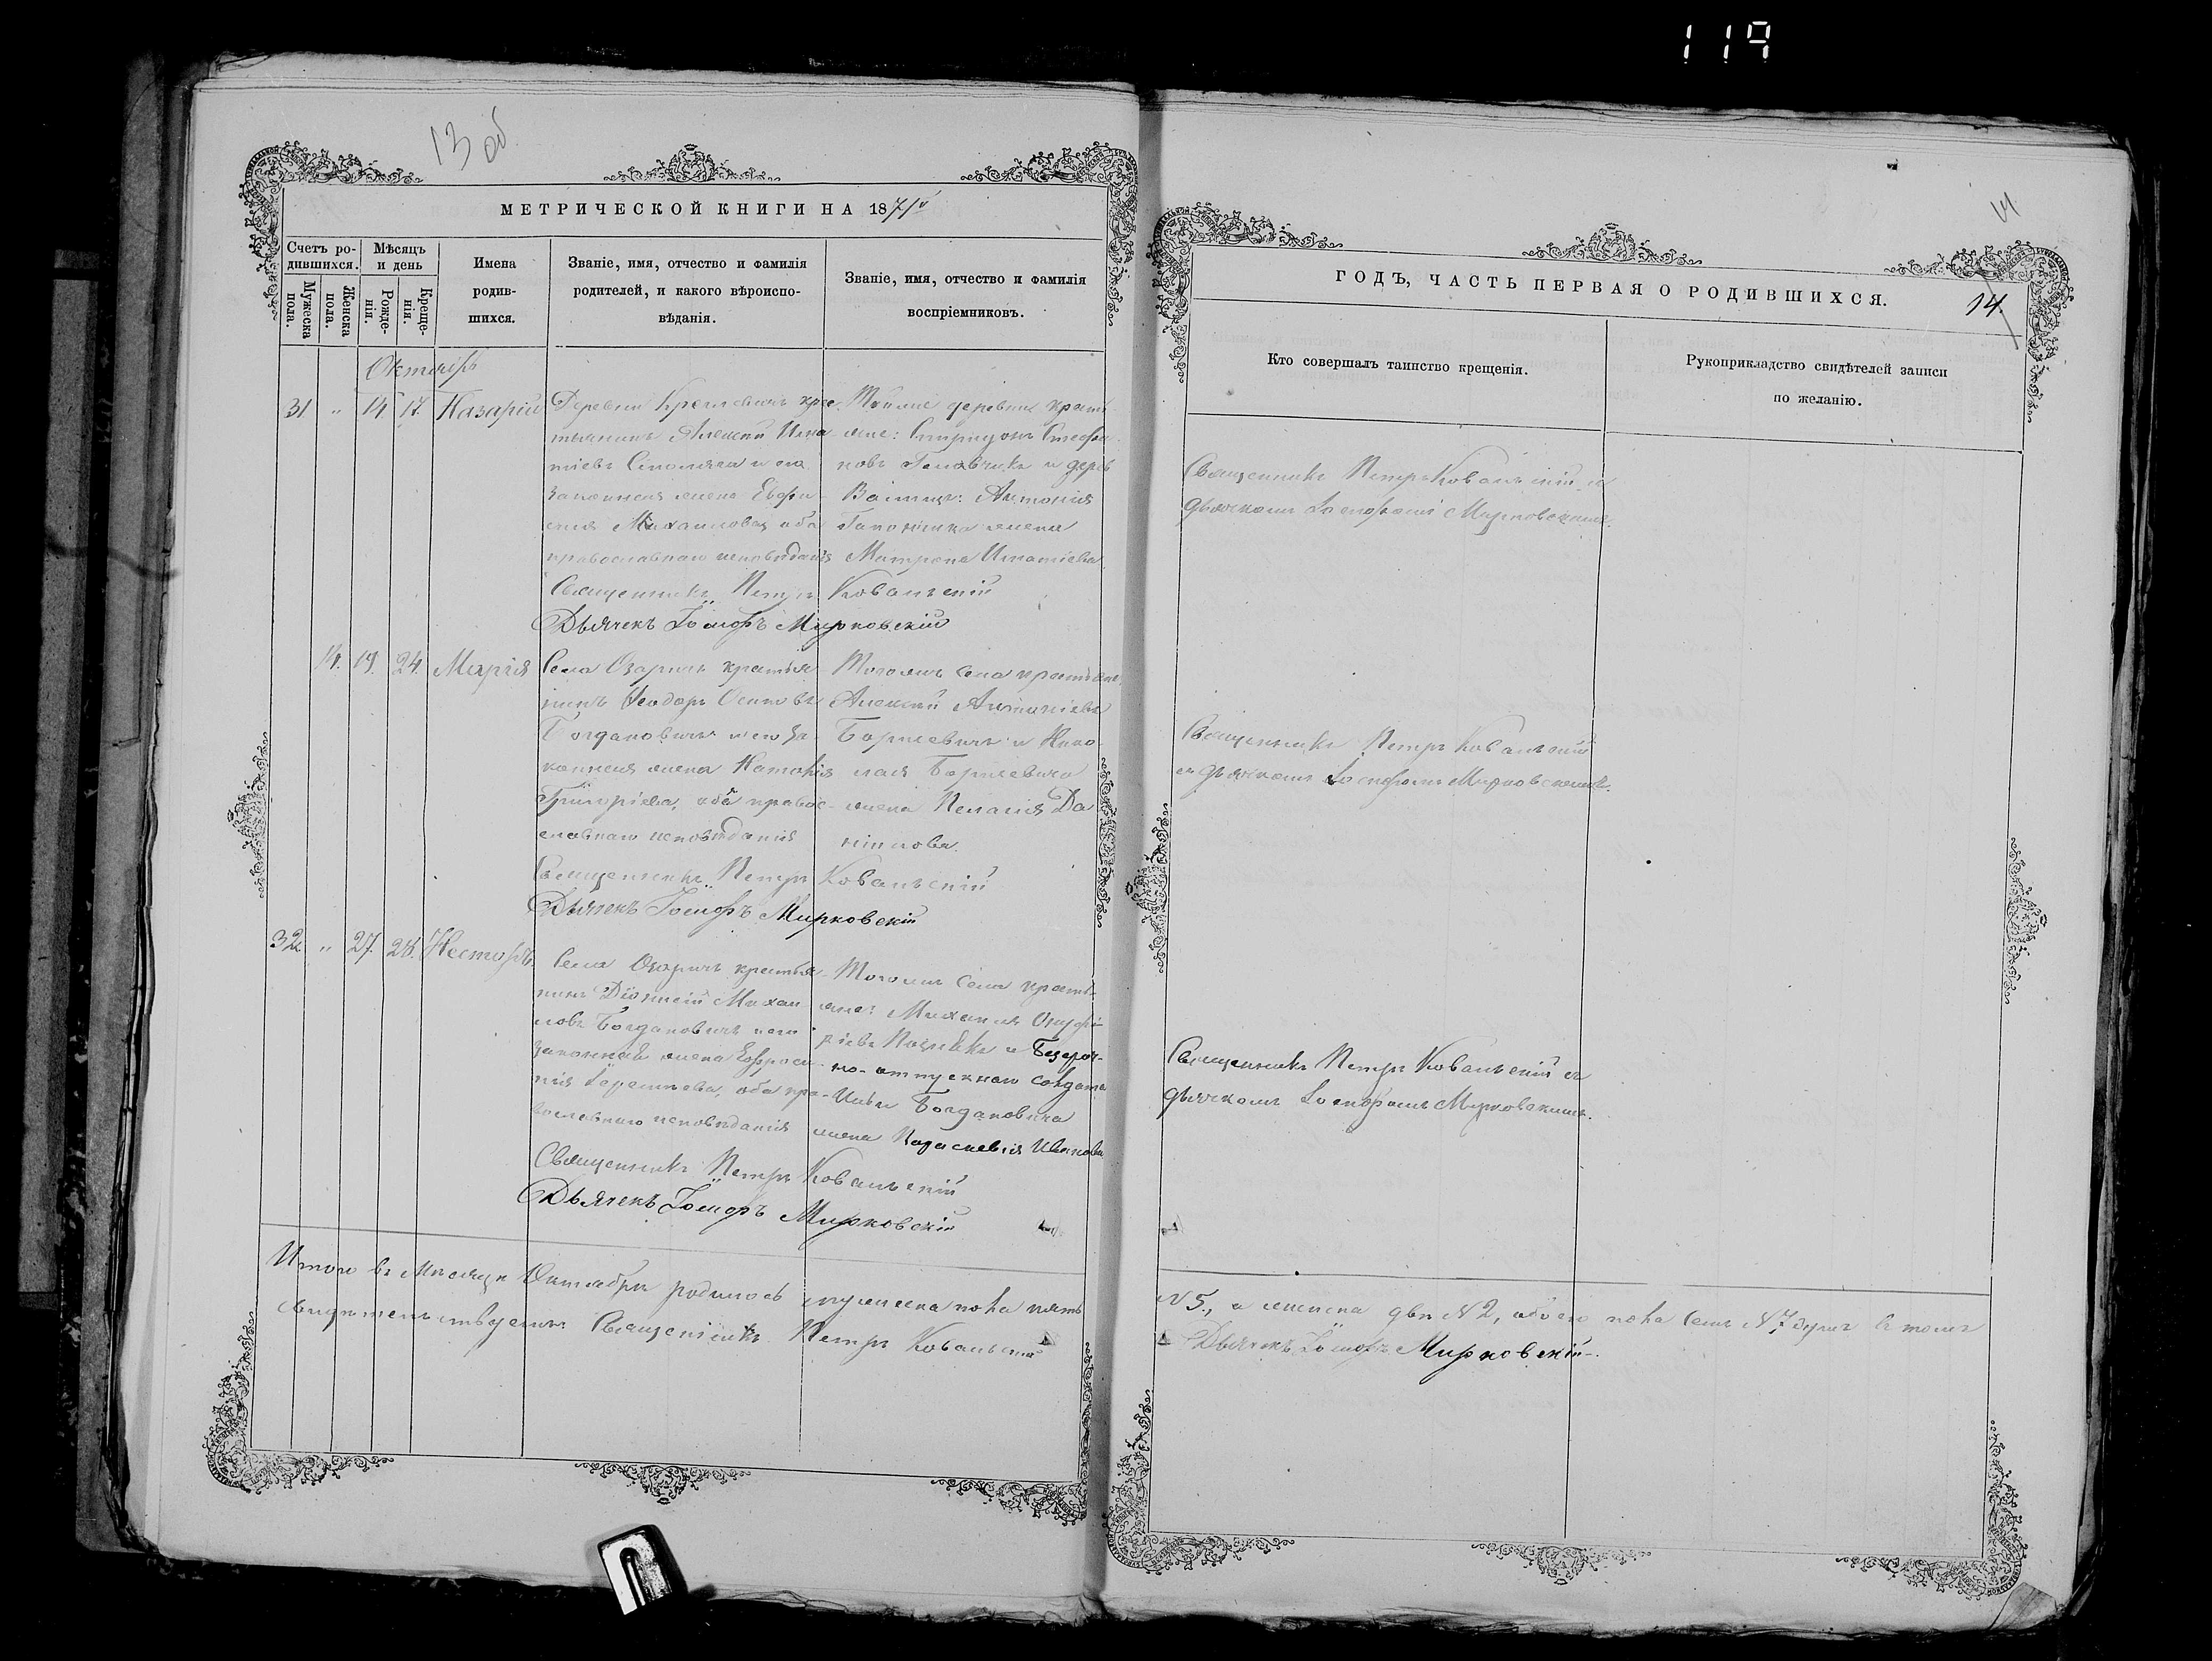 119
13 об
МЕТРИЧЕСКОЙ КНИГИ НА 1871й
Счетъ ро-
дившихся.
Мужеска
пола.
Женска
пола.
Мѣсяцъ
и день
Рожде-
нія.
Креще-
нія.
Имена
родив-
шихся.
Званіе, имя, отчество и фамилія
родителей, и какого вѣроиспо-
вѣданія.
Званіе, имя, отчество и фамилія
воспріемниковъ.
Октябрь
31 " 14 17. Назарій
Деревни крес-
тьянинъ Алексій Игна-
тіевъ и его
законная жена Евфи-
мія Михаилова, оба
православнаго исповѣданія
Тойже деревни крестья-
не: Спиридонъ Стефа-
новъ и дерев
Антонія
жена
Матрона Игнатіева.
Священникъ Петръ Ковальскій
Дьячекъ Іосифъ Мирковскій
14. 19. 24. Марія
Села Озаричъ крестья-
нинъ Ѳеодоръ Осиповъ
Богдановичъ и его за-
конная жена Наталія
Григоріева, оба правос-
лавнаго исповѣданія
Тогоже села крестьяне
Алексій Антоніевъ
Борисевичъ и Нико-
лая Борисевича
жена Пелагія Да-
ніилова.
Священникъ Петръ Ковальскій
Дьячекъ Іосифъ Мирковскій
32. " 27. 28. Несторъ
Села Озаричъ крестья-
нинъ Діонисій Михаи-
ловъ Богдановичъ и его
законная жена Ефроси-
нія оба пра-
вославнаго исповѣданія
Тогоже села крестья-
не: Михаилъ Онуф-
ріевъ и Безсроч-
но-отпускнаго солдата
Ильи Богдановича
жена Параскевія Иванова
Священникъ Петръ Ковальскій
Дьячекъ Іосифъ Мирковскій
Итого въ Мѣсяцѣ Октябрѣ родилось мужеска пола пять
свидѣтельствуемъ: Священникъ Петръ Ковальскій
14
ГОДЪ, ЧАСТЬ ПЕРВАЯ О РОДИВШИХСЯ.
14.
Кто совершалъ таинство крещенія.
Рукоприкладство свидѣтелей записи
по желанію.
Священникъ Петръ Ковальскій съ
дьячкомъ Іосифомъ Мирковскимъ.
Священникъ Петръ Ковальскій
съ дьячкомъ Іосифомъ Мирковскимъ.
Священникъ Петръ Ковальскій съ
дьячкомъ Іосифомъ Мирковскимъ.
N 5., а женска двѣ N 2, обоего пола семь N 7 душъ въ томъ
Дьячекъ Іосифъ Мирковскій.